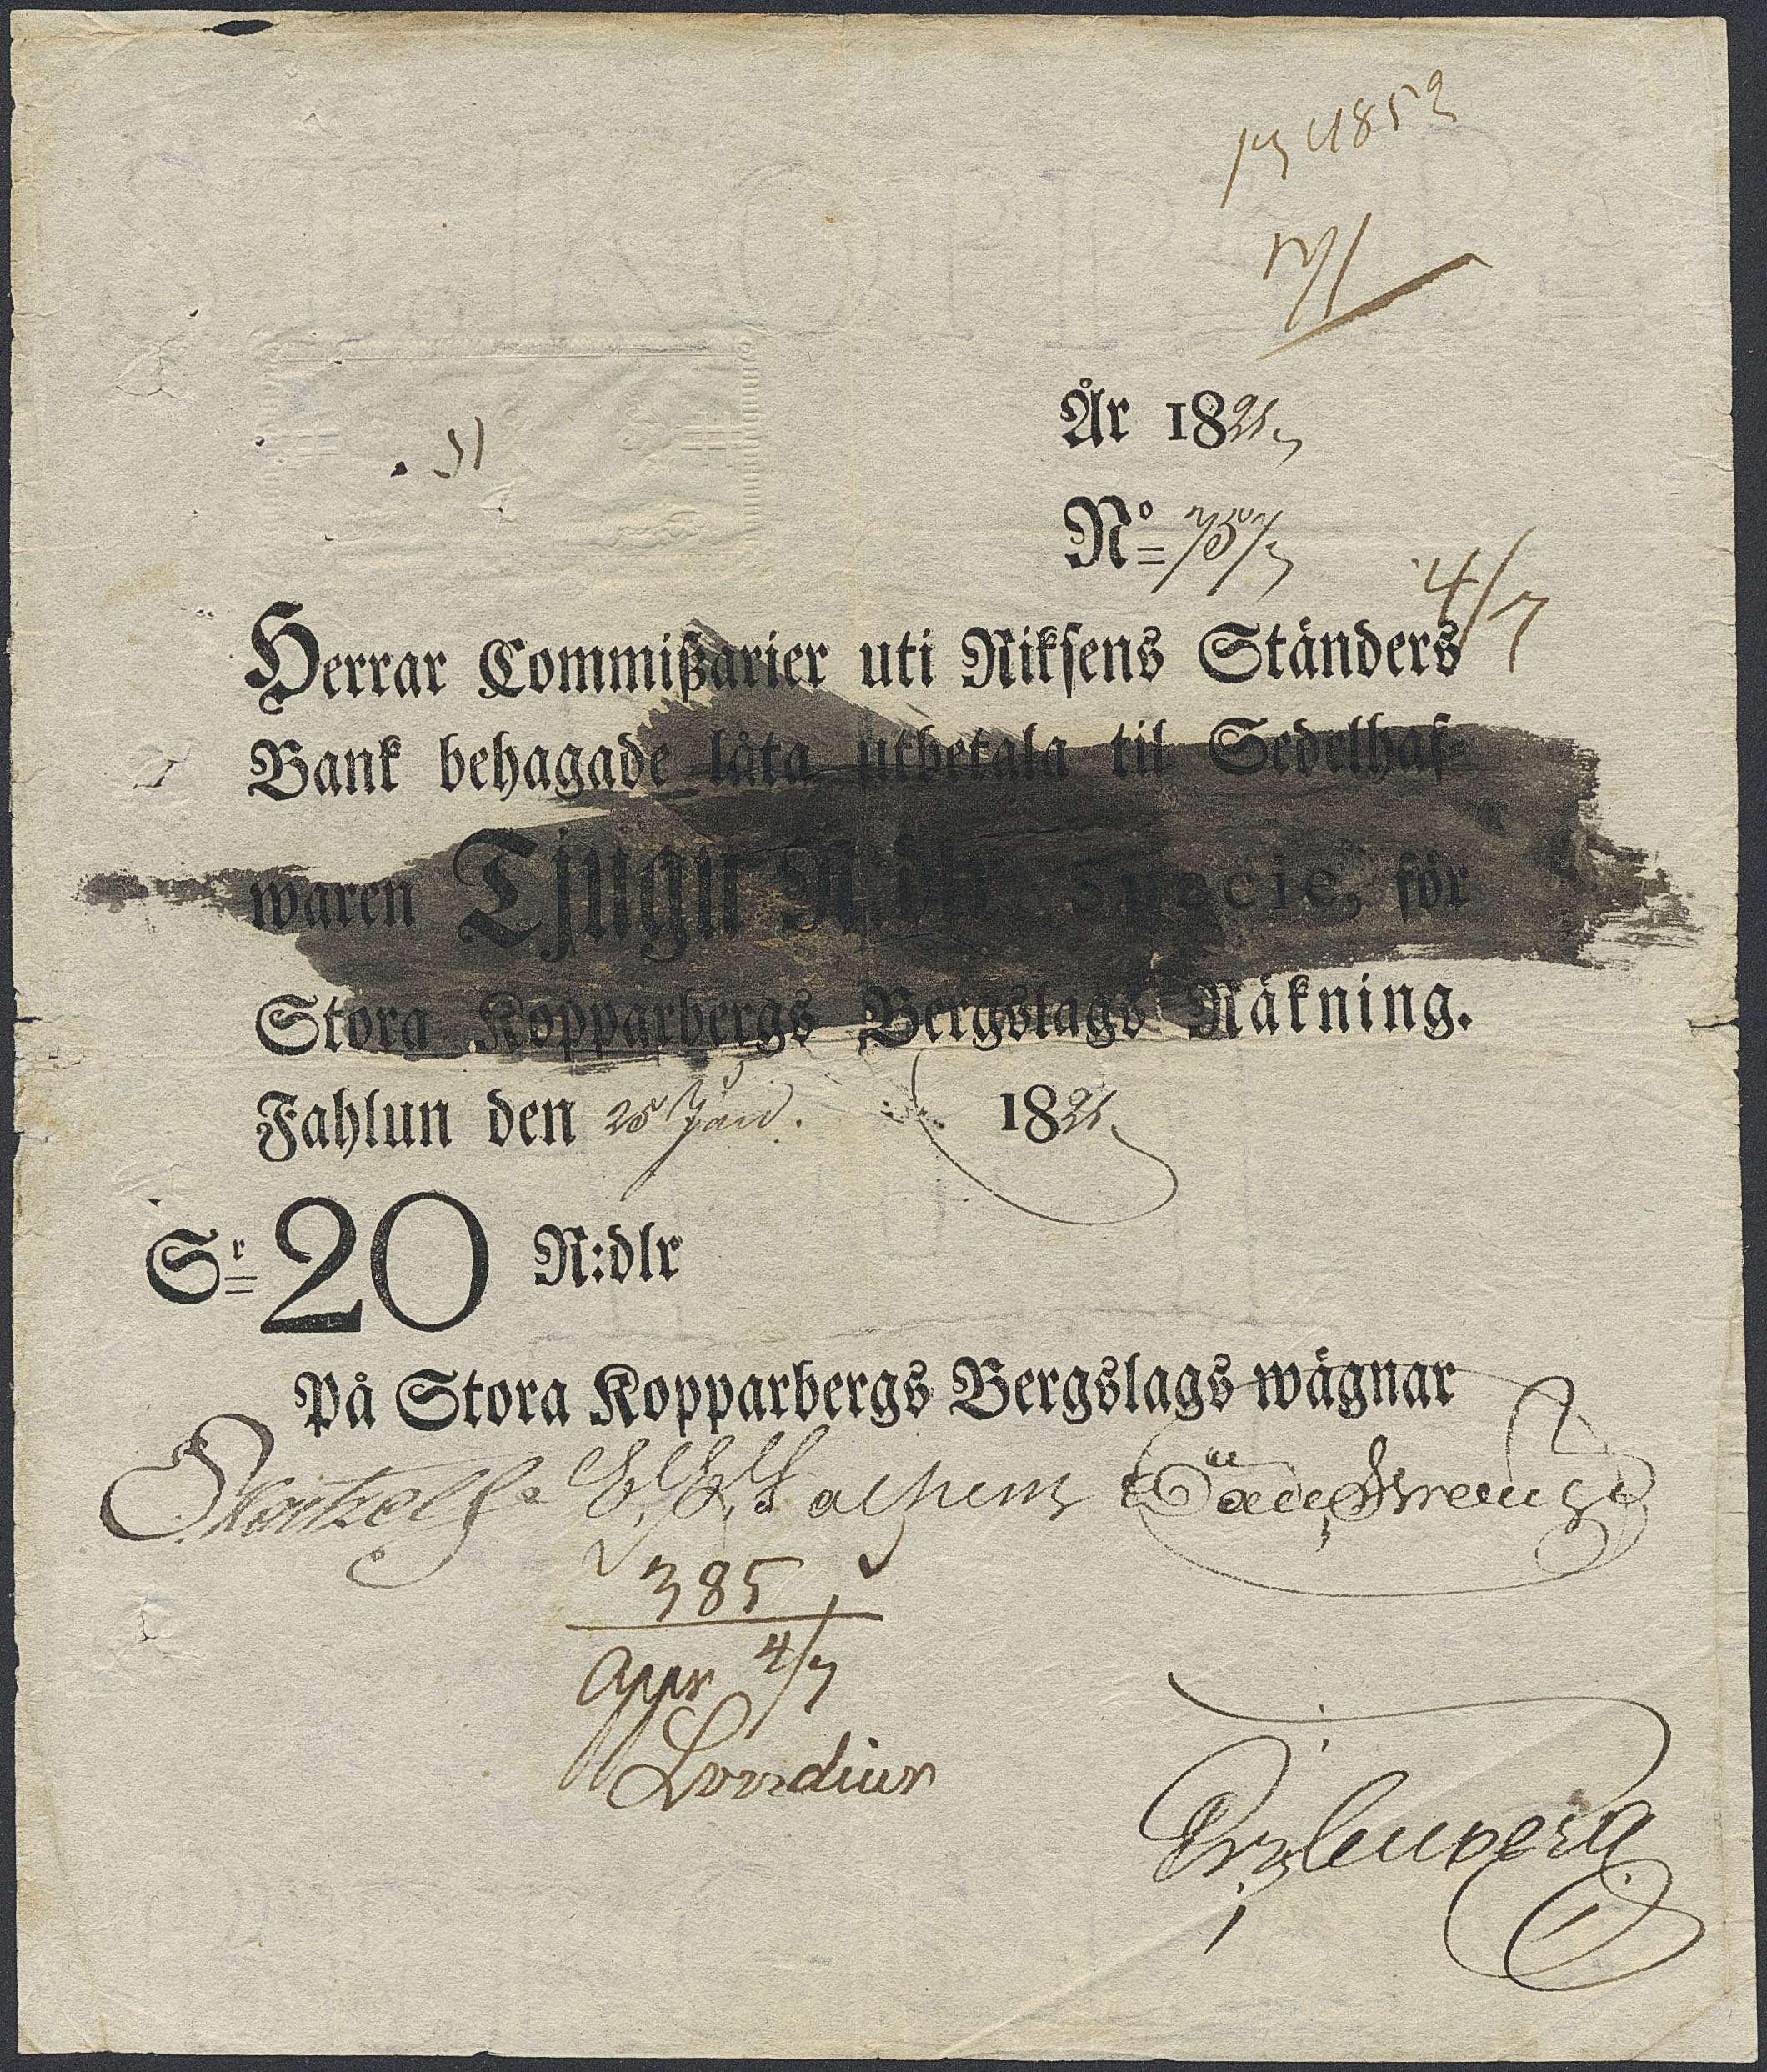 År 1821
No 757
4/7
Herrar Commißarier uti Riksens Ständers
Bank behagade låta utbetala til Sedelhaf-
waren Tjugu R:dlr Specie, för
Stora Kopparbergs Bergslags Räkning.
Fahlun den 25 Jan. 1821
Sr 20 R:dlr
På Stora Kopparbergs Bergslags wägnar
385
Appr 4/7